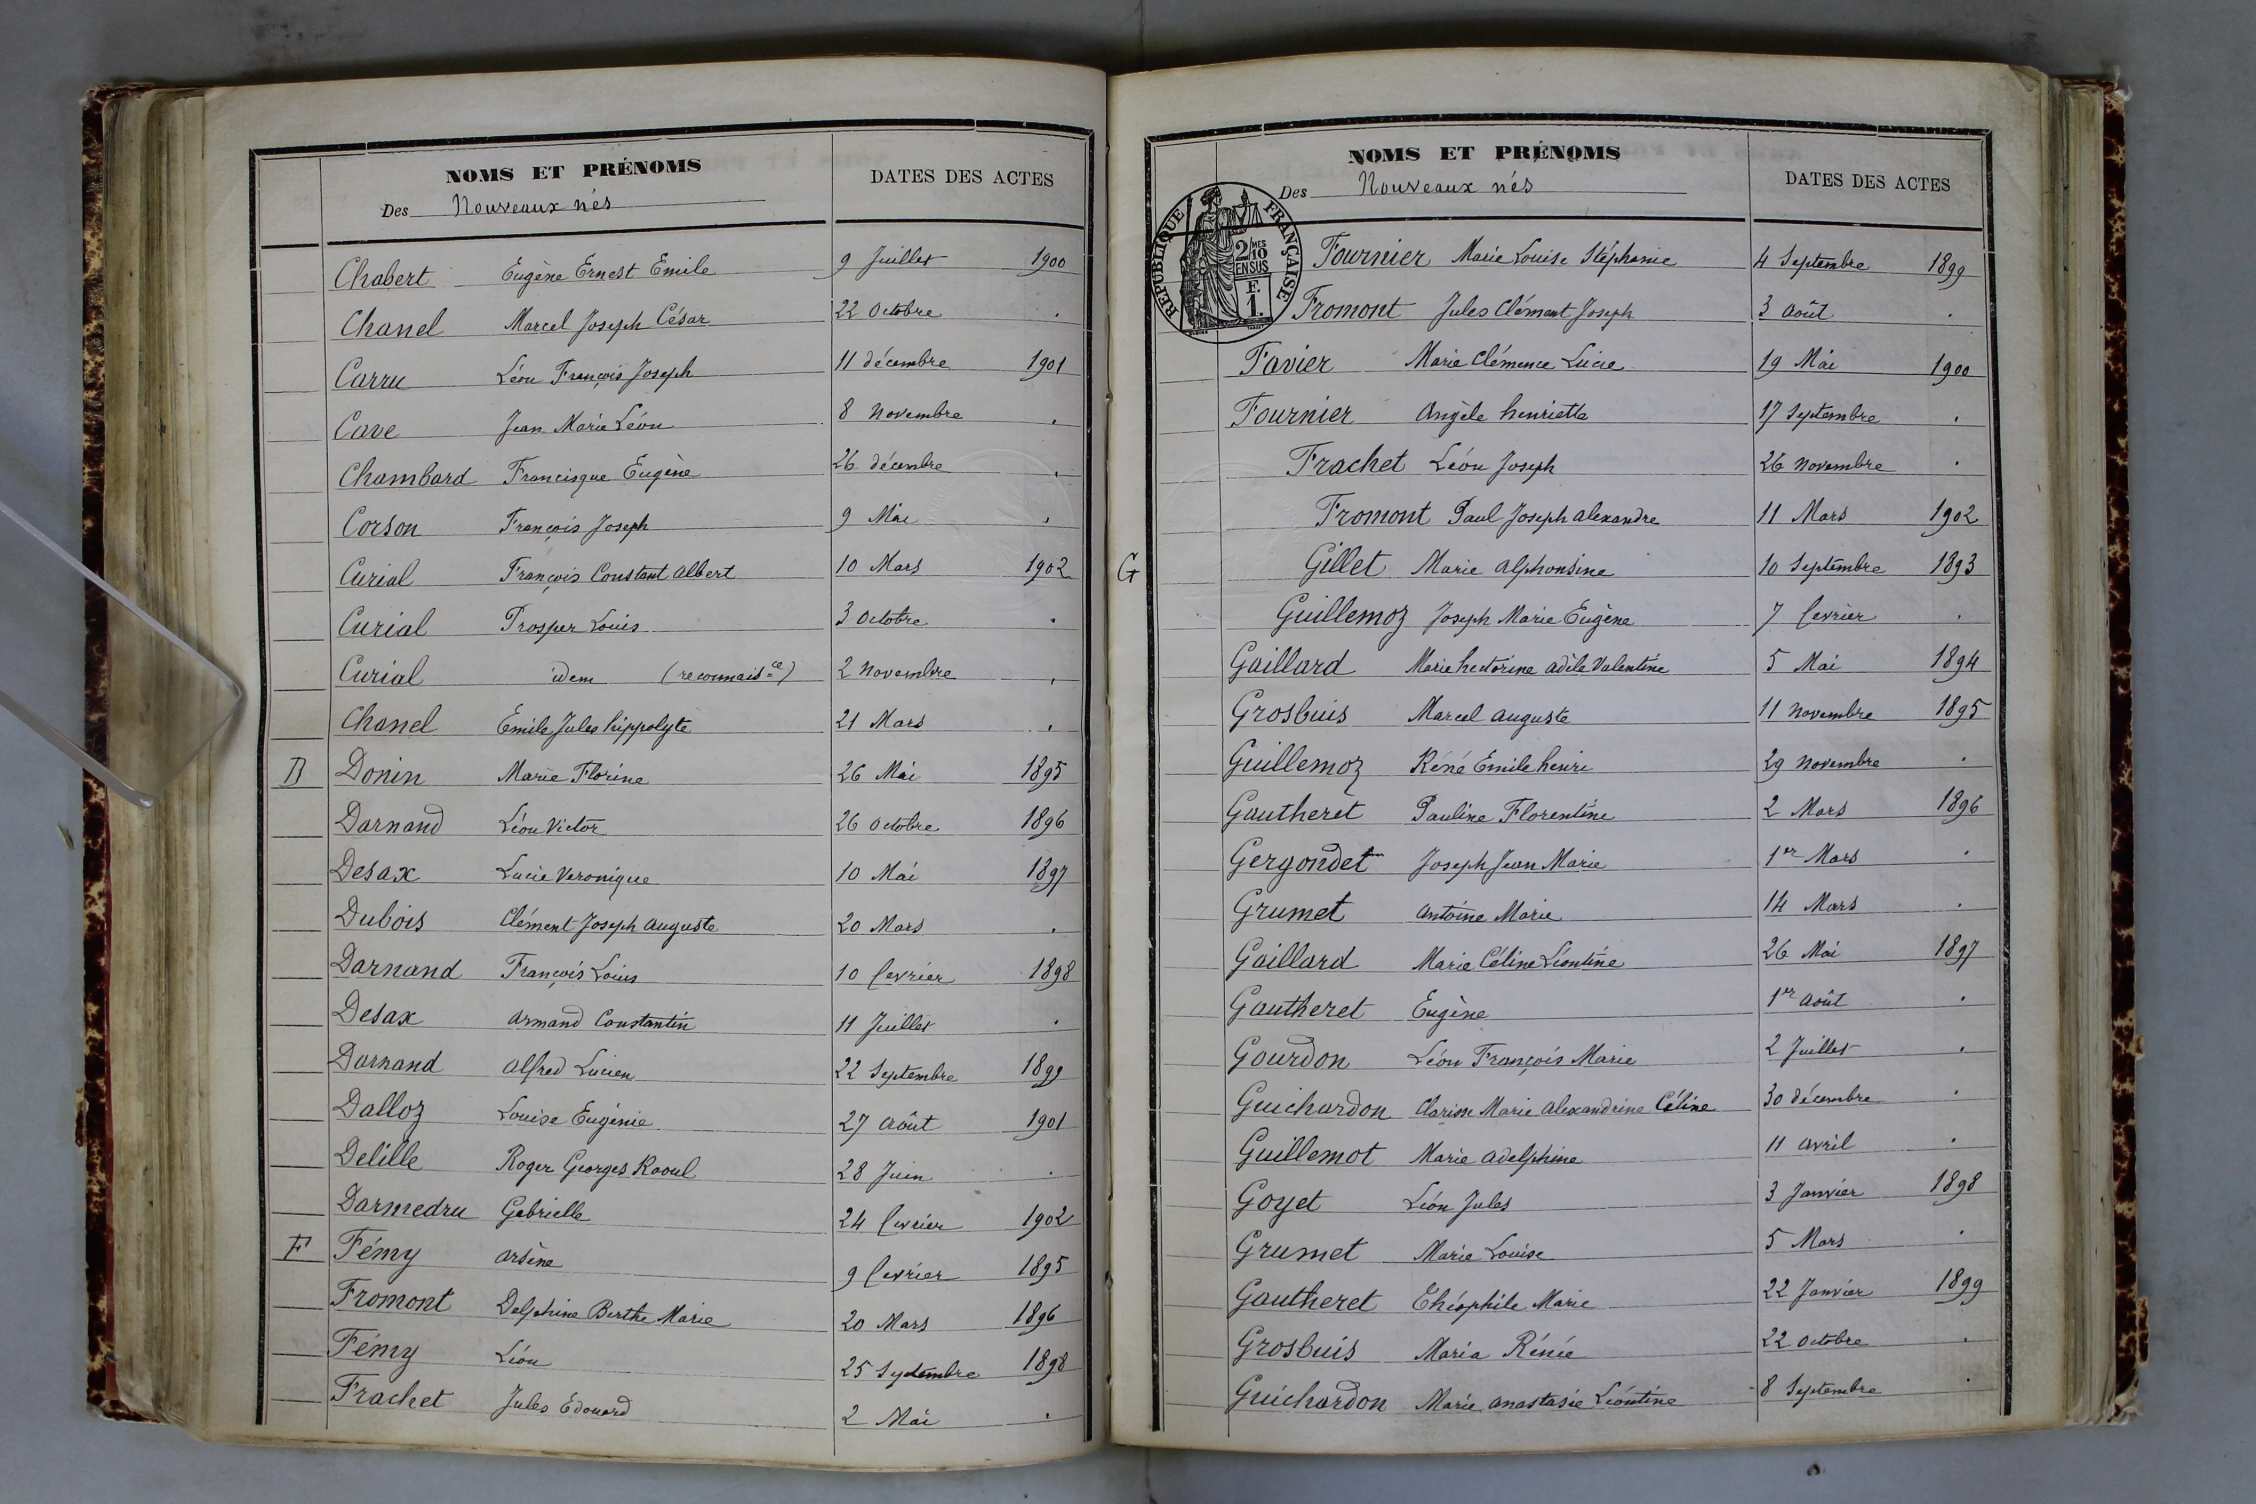 NOMS ET PRÉNOMS DATES DES ACTES
Des Nouveaux nés
Chabert Eugène Ernest Emile 9 Juillet 1900
Chanel Marcel Joseph César 22 Octobre .
Carru Léon François Joseph 11 décembre 1901
Cave Jean Marie Léon 8 Novembre .
Chambard Francisque Eugène 26 décembre .
Corson François Joseph 9 Mai .
Curial François Constant Albert 10 Mars 1902
Curial Prosper Louis 3 Octobre .
Curial idem (reconnaisce) 2 Novembre .
Chanel Emile Jules hippolyte 21 Mars .
D Donin Marie Florine 26 Mai 1895
Darnand Léon Victor 26 Octobre 1896
Desax Lucie Veronique 10 Mai 1897
Dubois Clément Joseph Auguste 20 Mars .
Darnand François Louis 10 fevrier 1898
Desax Armand Constantin 11 Juillet .
Darnand Alfred Lucien 22 Septembre 1899
Dalloz Louise Eugénie 27 Août 1901
Delille Roger Georges Raoul 28 Juin .
Darmedru Gabrielle 24 fevrier 1902
F Fémy Arsène 9 fevrier 1895
Fromont Delphine Berthe Marie 20 Mars 1896
Fémy Léon 25 Septembre 1898
Frachet Jules Edouard 2 Mai .
NOMS ET PRÉNOMS DATES DES ACTES
Des Nouveaux nés
RÉPUBLIQUE FRANÇAISE
2/10 MES
EN SUS
F.
1.
Fournier Marie Louise Stéphanie 4 Septembre 1899
Fromont Jules Clément Joseph 3 Août .
Favier Marie Clémence Lucie 19 Mai 1900
Fournier Angèle henriette 17 Septembre .
Frachet Léon Joseph 26 Novembre .
Fromont Paul Joseph Alexandre 11 Mars 1902
G Gillet Marie Alphonsine 10 Septembre 1893
Guillemoz Joseph Marie Eugène 7 fevrier .
Gaillard Marie hectorine Adèle Valentine 5 Mai 1894
Grosbuis Marcel Auguste 11 Novembre 1895
Guillemoz Réné Emile henri 29 Novembre .
Gautheret Pauline Florentine 2 Mars 1896
Gergondet Joseph Jean Marie 1er Mars .
Grumet Antoine Marie 14 Mars .
Gaillard Marie Céline Léontine 26 Mai 1897
Gautheret Eugène 1er Août .
Gourdon Léon François Marie 2 Juillet .
Guichardon Marie Alexandrine Céline 30 décembre .
Guillemot Marie Adelphine 11 Avril .
Goyet Léon Jules 3 Janvier 1898
Grumet Marie Louise 5 Mars .
Gautheret Théophile Marie 22 Janvier 1899
Grosbuis Maria Rénée 22 Octobre .
Guichardon Marie Anastasie Léontine 8 Septembre .